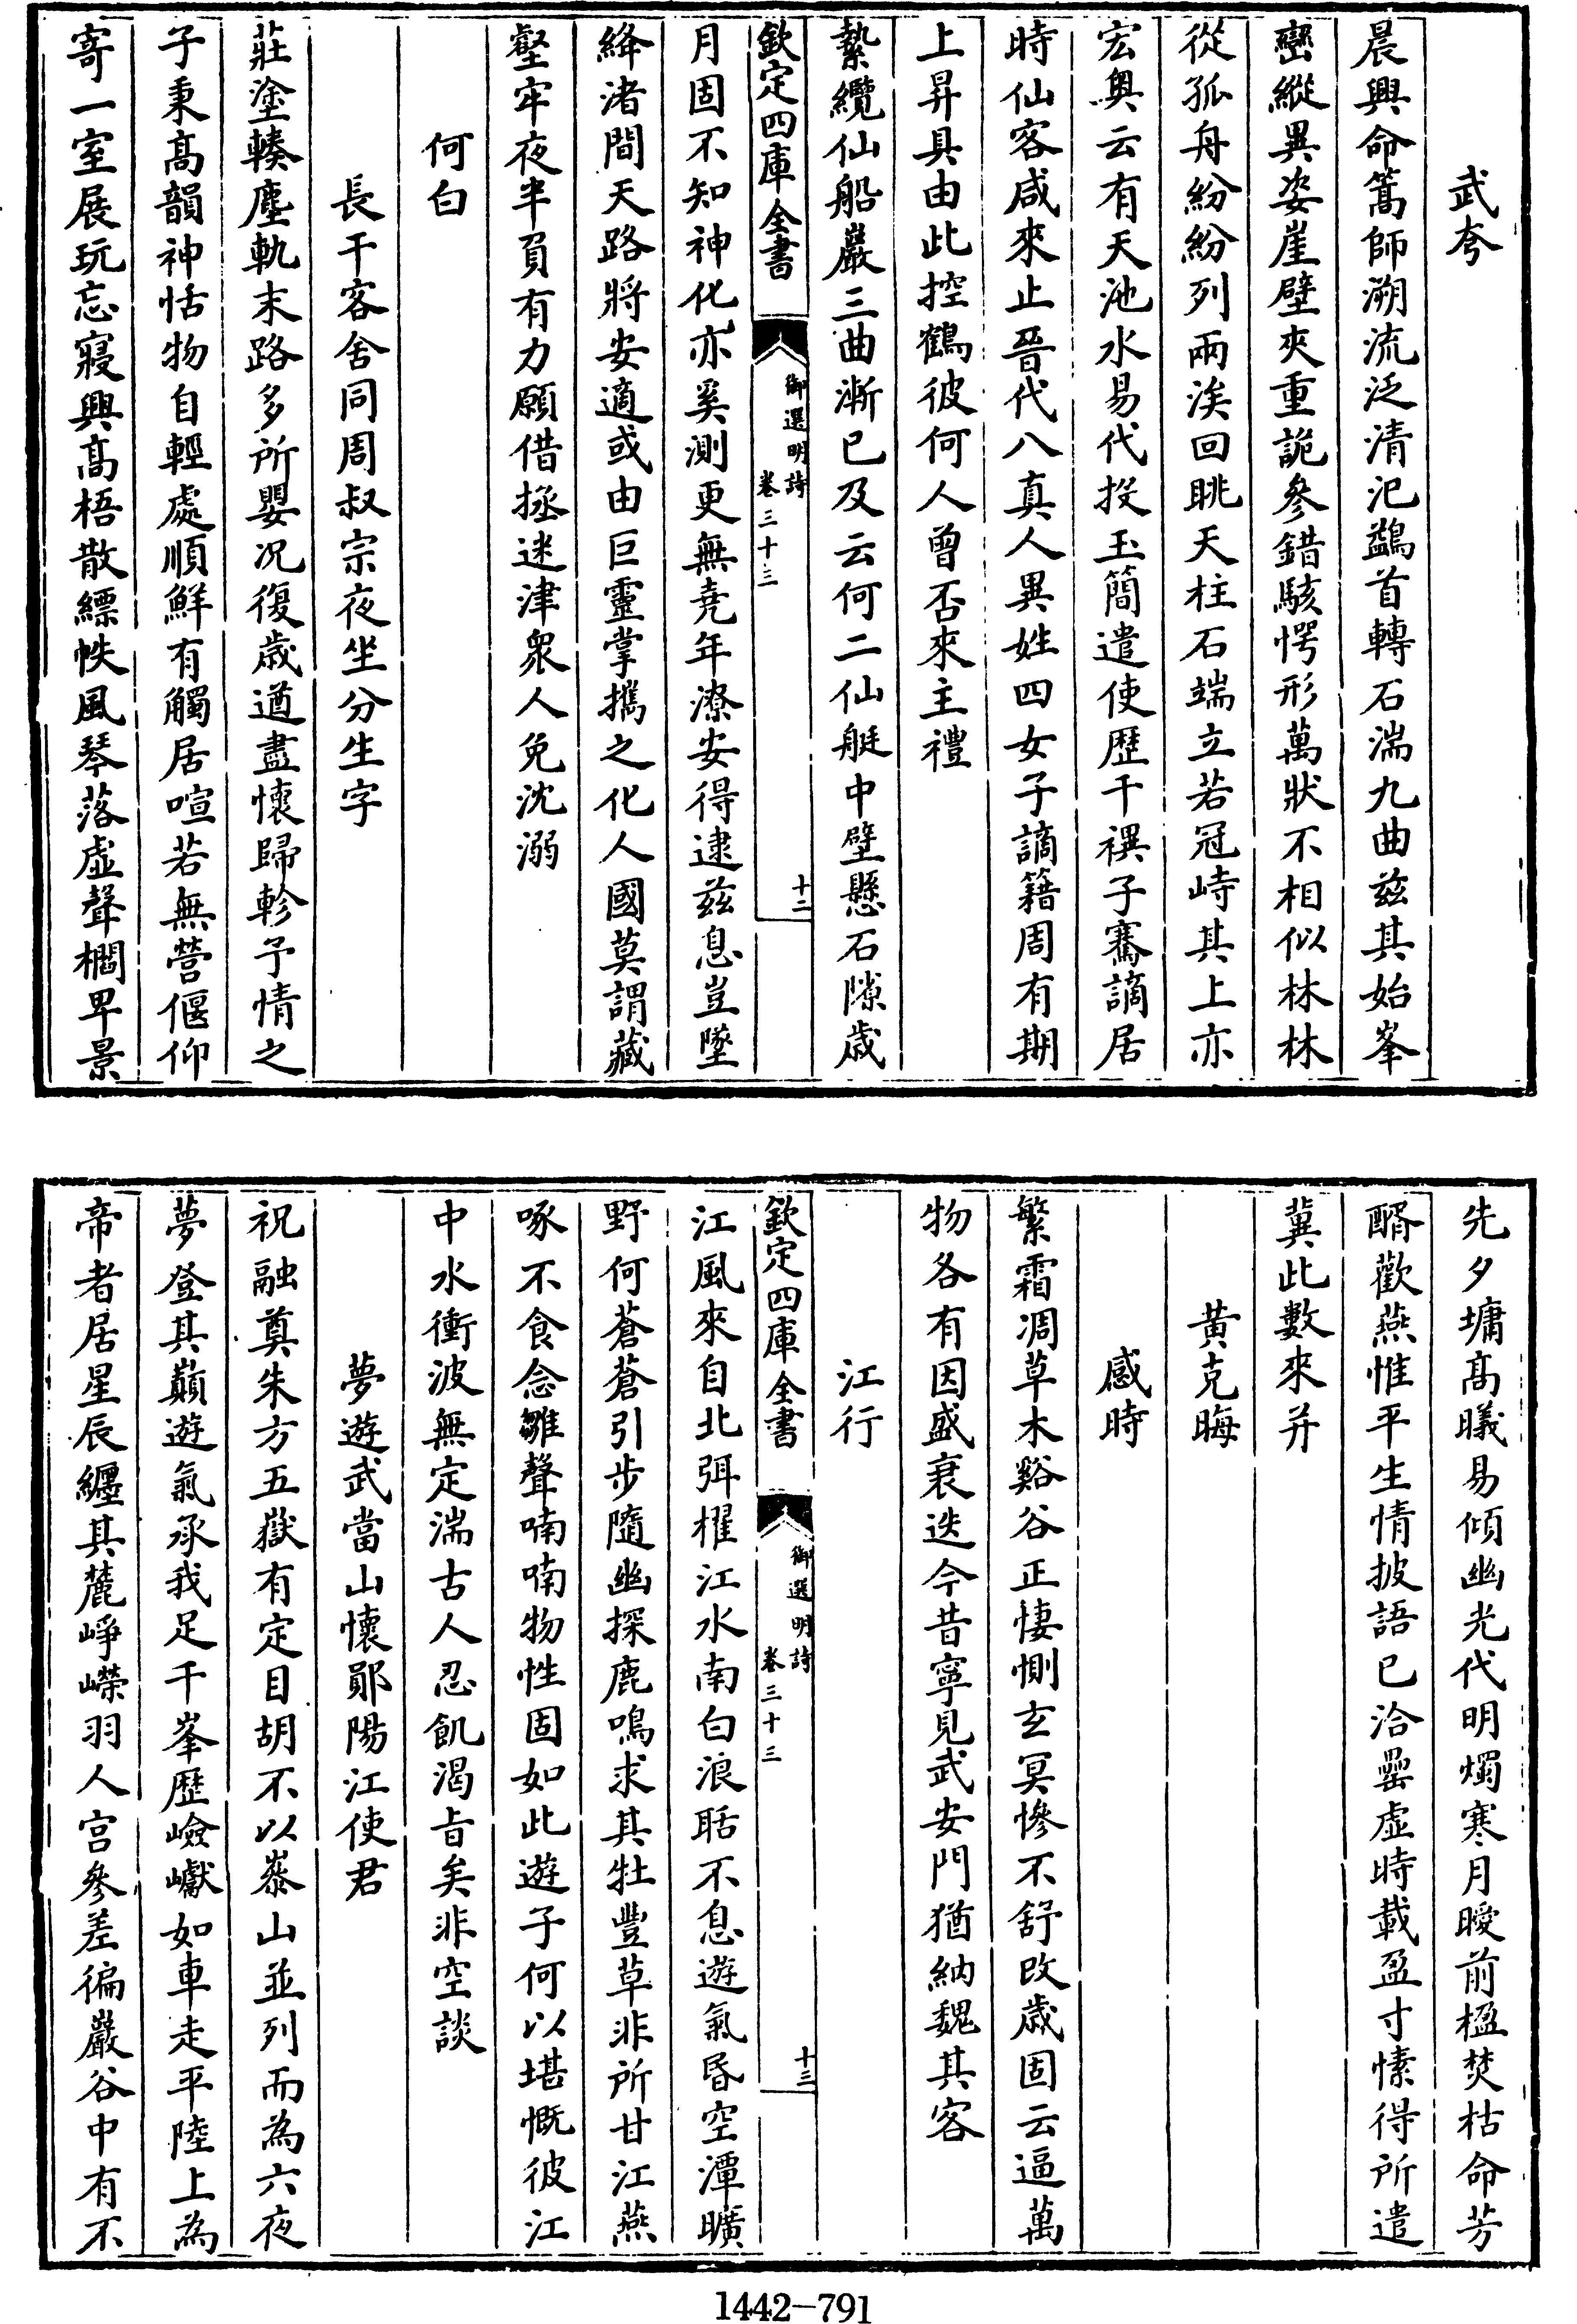 武夸
晨興命篙師溯流泛清汜鷁首轉石湍九曲兹其始峯
巒縱異姿崖壁夾重詭參錯駭愕形萬狀不相似林林
從孤舟紛紛列兩涘回眺天柱石端立若冠峙其上亦
宏奥云有天池水易代投玉簡遣使歴千禩子騫謫居
時仙客咸來止晉代八真人異姓四女子謫籍周有期
上昇具由此控鶴彼何人曾否來主禮
縶纜仙船巖三曲漸已及云何二仙艇中壁懸石隙歲
欽定四庫全書
御選明詩
卷三十三
十二
月固不知神化亦奚測更無堯年潦安得逮兹息豈墜
絳渚間天路將安適或由巨靈掌攜之化人國莫謂藏
壑牢夜半負有力願借拯迷津衆人免沈溺
何白
長干客舍同周叔宗夜坐分生字
莊塗轃塵軌末路多所嬰况復歳遒盡懷歸軫予情之
子秉髙韻神恬物自輕處順鮮有觸居喧若無營偃仰
寄一室展玩忘寢興髙梧散縹帙風琴落虚聲櫩卑景
先夕墉髙曦易傾幽光代明燭寒月曖前楹焚枯命芳
醑歡燕惟平生情披語已洽罍虚時載盈寸愫得所遣
冀此數來并
黄克晦
感時
繁霜凋草木谿谷正悽惻玄冥慘不舒改歳固云逼萬
物各有因盛衰迭今昔寧見武安門猶納魏其客
江行
欽定四庫全書
御選明詩
卷三十三
十三
江風來自北弭櫂江水南白浪聒不息遊氣昏空潭曠
野何蒼蒼引步隨幽探鹿鳴求其牡豐草非所甘江燕
啄不食念雛聲喃喃物性固如此遊子何以堪慨彼江
中水衝波無定湍古人忍飢渴旨矣非空談
夢遊武當山懷鄖陽江使君
祝融奠朱方五嶽有定目胡不以叅山並列而為六夜
夢登其巔遊氣承我足千峯歴嶮巘如車走平陸上為
帝者居星辰纏其麓崢嶸羽人宫參差徧巖谷中有不
1442-791